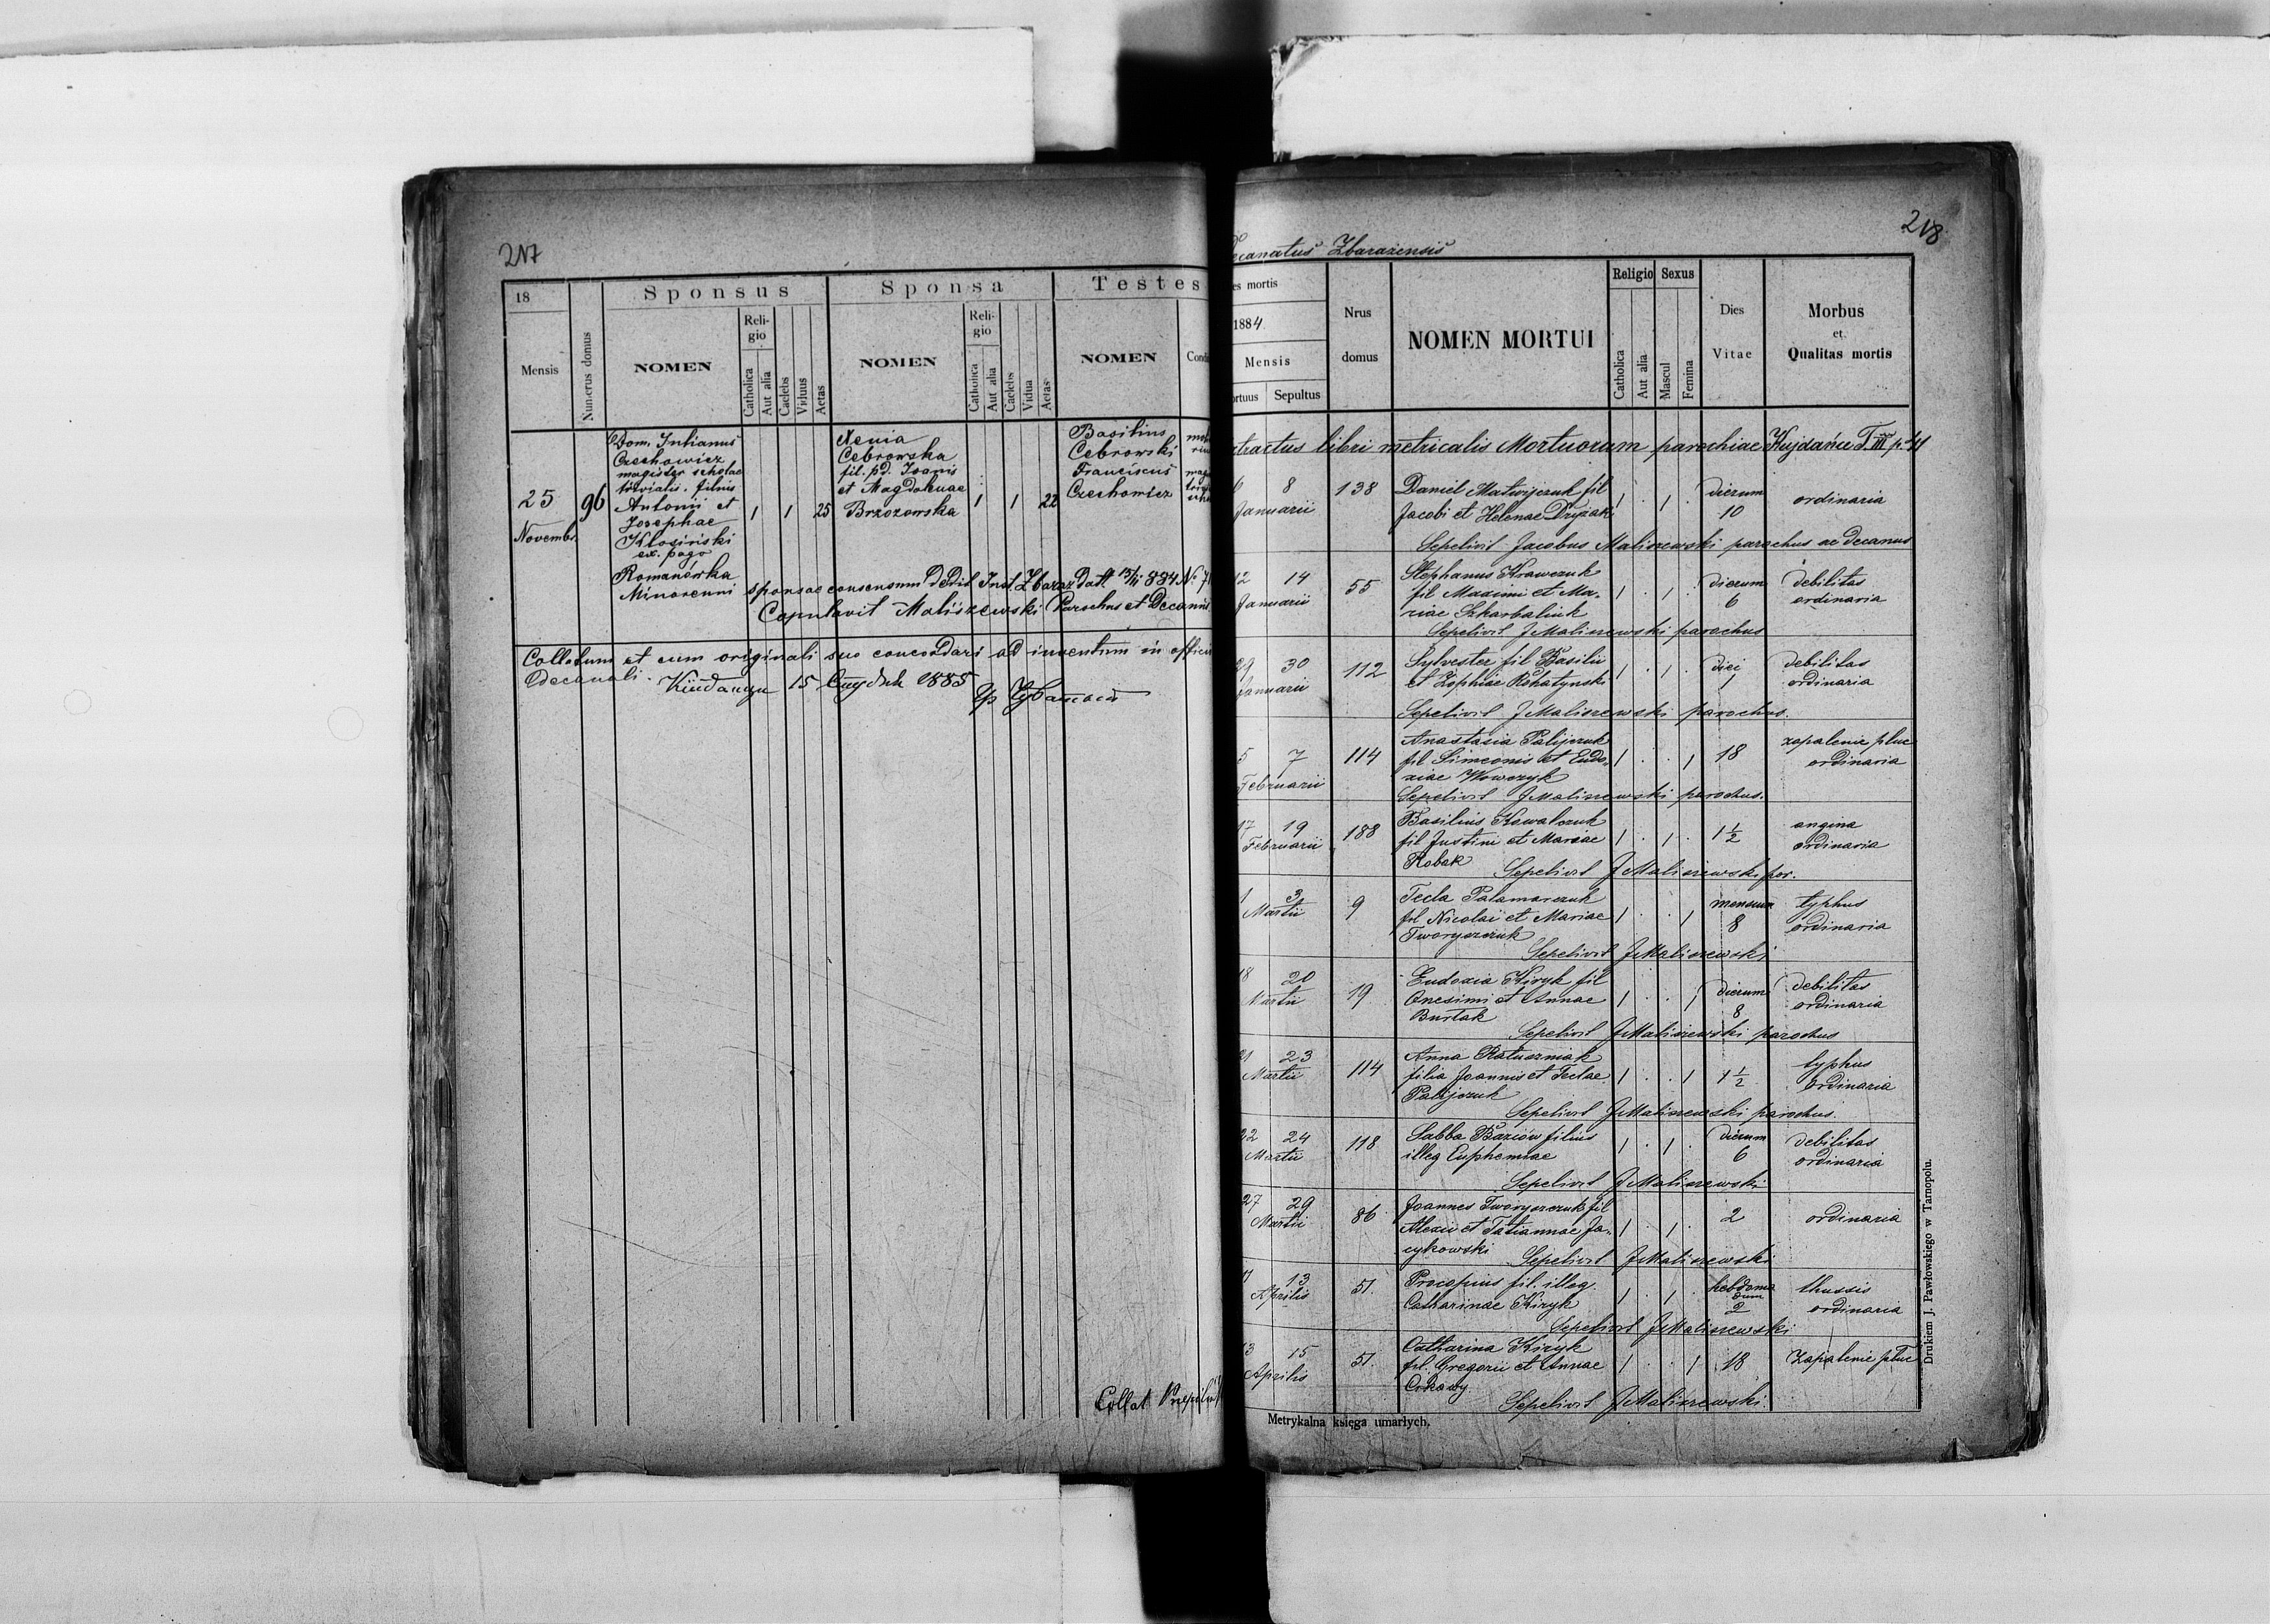 217
18
Mensis
Numerus domus
Sponsus
NOMEN
Reli-
gio
Catholica
Aut alia
Caelebs
Viduus
Aetas
Sponsa
NOMEN
Reli-
gio
Catholica
Aut alia
Caelebs
Vidua
Aetas
Testes
NOMEN
Condi
25
Novembr.
96
Dom. Julianus
Czechowicz
magister scholae
trivialis. filius
Antonii et
Josephae
Kłosiński
ex. pago
Romanówka
1 1 25
Xenia
Cebrowska
fil. pd. Joanis
et Magdalenae
Brzozowska
1 1 22
Basilius
Cebrowski
Franciscus
Czechowicz
Minorenni sponsae consensum dedit Inst. Zbaraz
Copulavit Maliszewski Parochus et Decanus
Collatum et cum originali suo concordari ad inventum in
Decanali.
15 1885
Collat
218
ecanatus Zbarazensis
es mortis
1884.
Mensis
ortuus Sepultus
Nrus
domus
NOMEN MORTUI
Religio
Catholica
Aut alia
Sexus
Mascul
Femina
Dies
Vitae
Morbus
et.
Qualitas mortis
tractus libri metricalis Mortuorum parochiae Kujdańce T. III p. 41
6 8
Januarii
138
Daniel Matwijczuk fil
Jacobi et Helenae Dryzak
1 . 1 .
dierum
10
ordinaria
Sepelivit Jacobus Maliszewski parochus ac decanus
12 14
Januarii
55
Stephanus Krawczuk
fil Maximi et Ma-
riae Szkarbaliuk
1 . 1 .
dierum
6
debilitas
ordinaria
Sepelivit J Maliszewski parochus
29 30
Januarii
112
Sylvester fil Basilii
et Zophiae Rohatynski
1 . 1 .
diei
1
debilitas
ordinaria
Sepelivit J Maliszewski parochus.
5 7
Februarii
114
Anastasia Palijczuk
fil Simeonis et Eudo-
xiae Wowczyk
1 . . 1
18
zapalenie płuc
ordinaria
Sepelivit J Maliszewski parochus.
17 19
Februarii
188
Basilius Kowalczuk
fil Justini et Mariae
Robak
1 . 1 .
1 1/2
angina
ordinaria
Sepelivit J Maliszewski par.
1 3
Martii
9
Tecla Palamarczuk
fil Nicolai et Mariae
Tworyszczuk
1 . . 1
mensium
8
typhus
ordinaria
Sepelivit J Maliszewski
18 20
Martii
19
Eudoxia Kiryk fil
Onesimi et Annae
Burtak
1 . . 1
dierum
8
debilitas
ordinaria
Sepelivit J Maliszewski parochus
21 23
Martii
114
Anna Ratuszniak
filia Joannis et Teclae
Palijczuk
1 . . 1
1 1/2
typhus
ordinaria
Sepelivit J Maliszewski parochus.
22 24
Martii
118
Sabba Baziów filius
illeg Euphemiae
1 . 1 .
dierum
6
debilitas
ordinaria
Sepelivit J Maliszewski
27 29
Martii
86
Joannes Tworyszczuk fil
Alexii et Tatiannae Ja-
cykowski
1 . 1 .
2
ordinaria
Sepelivit J Maliszewski
13
Aprilis
51.
Procopius fil. illeg.
Catharinae Kiryk
1 . 1 .
hebdoma
dum
2
thussis
ordinaria
Sepelivit J Maliszewski
13 15
Aprilis
51.
Catharina Kiryk
fil. Gregorii et Annae
1 . . 1
18
Zapalenie płuc
Sepelivit J Maliszewski.
Metrykalna księga umarłych.
Drukiem J. Pawłowskiego w Tarnopolu.